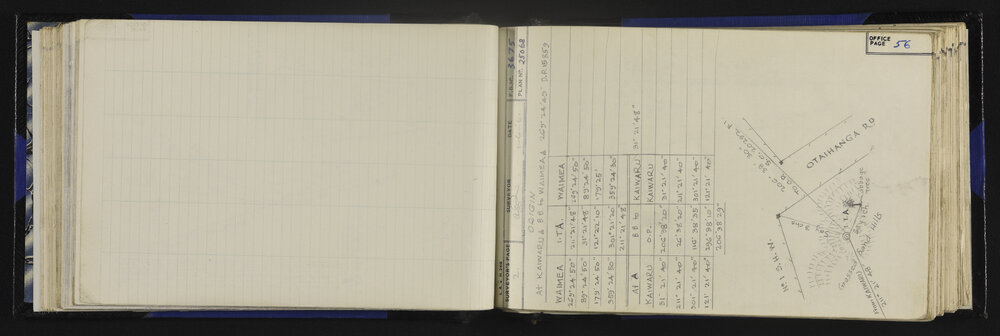 OFFICE PAGE 56
F.B. NO. 3675
PLAN NO. 25068
DATE
SURVEYOR
SURVEYOR'S PAGE 2
ORIGIN
At KAIWARU Δ BB to WAIMEA Δ 269° 24' 50" D.P. 15859
WAIMEA I.TA. WAIMEA
269° 24' 50" 211° 21' 48" 269° 24' 50"
89° 24' 50" 31° 21' 48" 89° 24' 50"
179° 24' 50" 121° 22' 10" 179° 25'
359° 24' 50" 301° 21' 20" 359° 24' 30"
211° 21' 48"
At A BB to KAIWARU 31° 21' 48"
KAIWARU O.P. KAIWARU
31° 21' 40" 206° 38' 20" 31° 21' 40"
211° 21' 40" 26° 38' 20" 211° 21' 40"
301° 21' 40" 116° 38' 35 301° 21' 40"
121° 21' 40" 296° 38' 10" 121° 21' 40"
206° 38' 29"
OTAIHANGA RD
TO O.P.
206° 38' 30"
S.O. 20292
No 1 S.H.W.
I T A
cabbage tree
Grassed Sand Hills
from KAIWARU
211° 21' 48